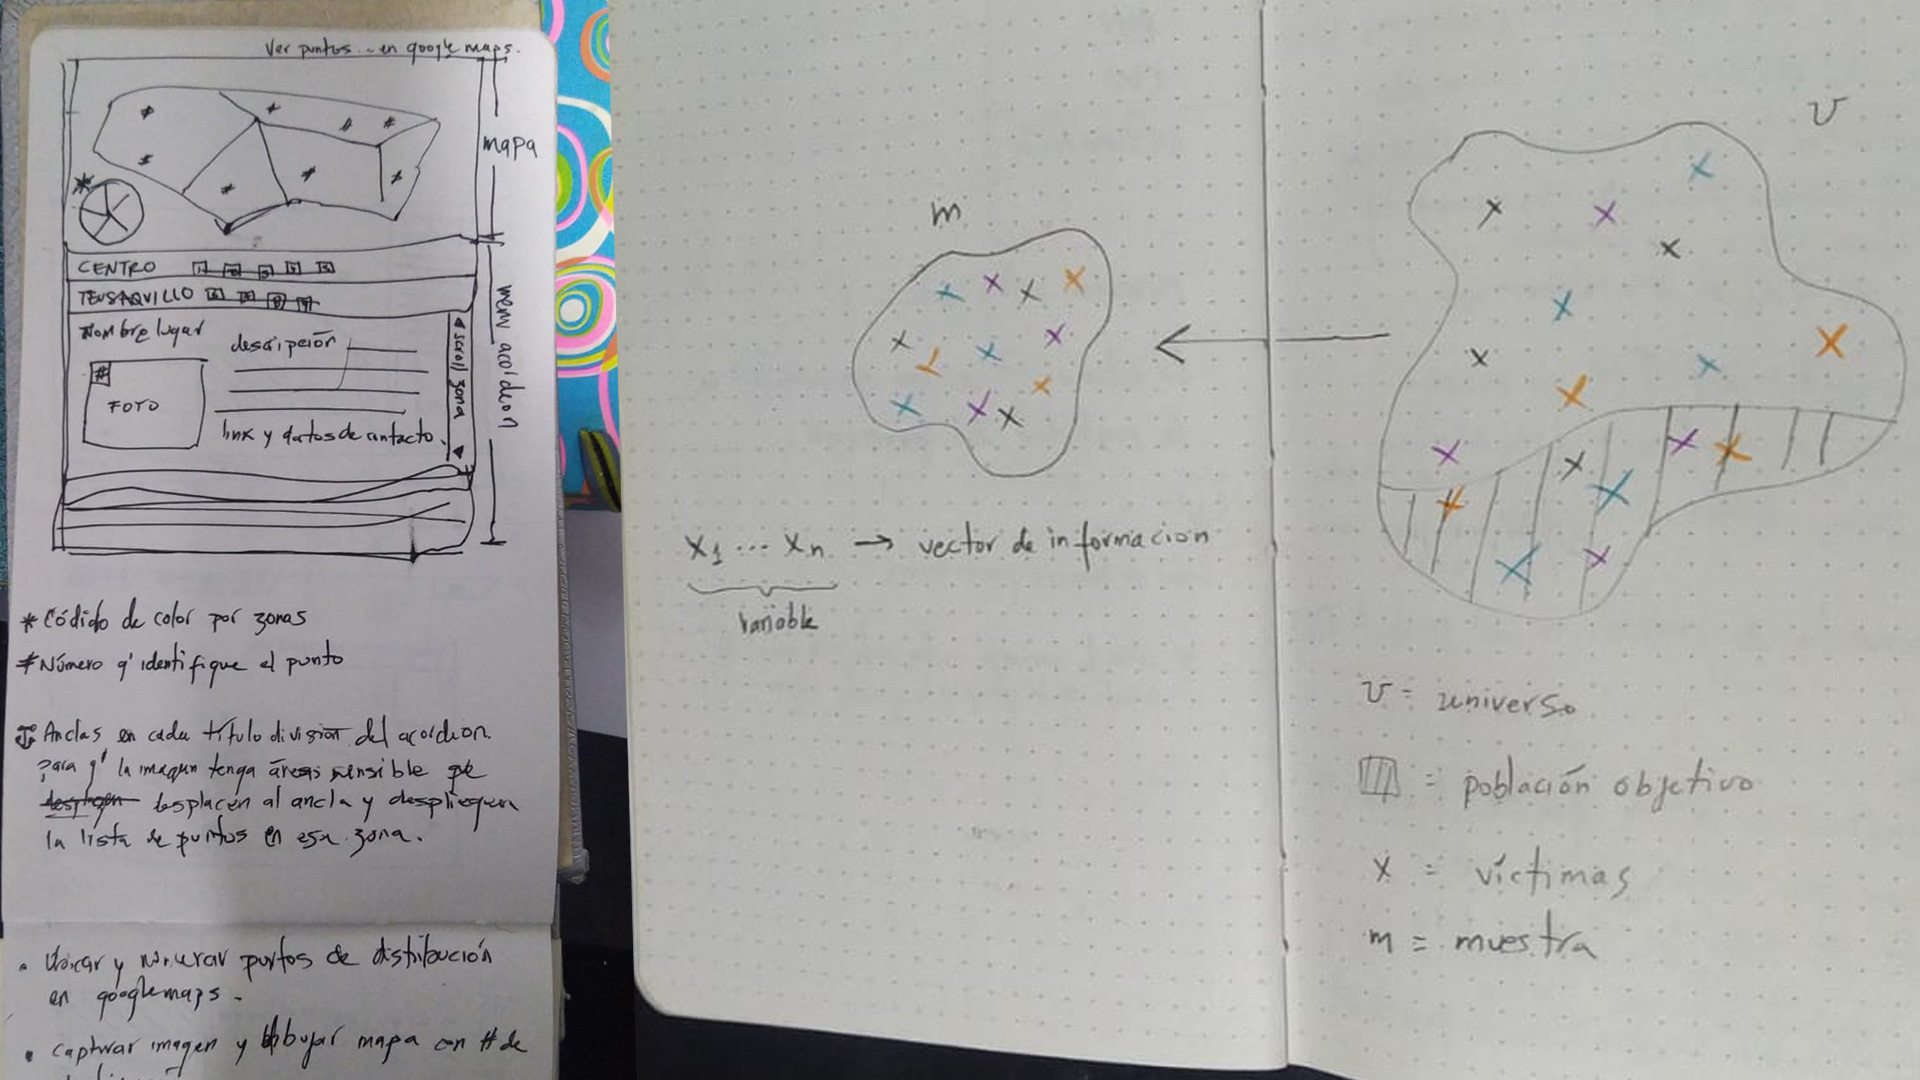 Ver puntos en google maps.
mapa
CENTRO
TEUSAQUILLO
Nombre lugar
descripción
#
FOTO
link y datos de contacto.
scroll zona
menu acordeon
* Códido de color por zonas
# Número q' identifique el punto
Anclas en cada título división del acordeon.
para q' la imagen tenga áreas sensible que
desplacen al ancla y desplieguen
la lista de puntos en esa zona.
• Ubicar y numerar puntos de distribución
en googlemaps.
• capturar imagen y dibujar mapa con # de
m
X1 ... Xn → vector de informacion
variable
U
U = universo
= población objetivo
X = víctimas
m = muestra